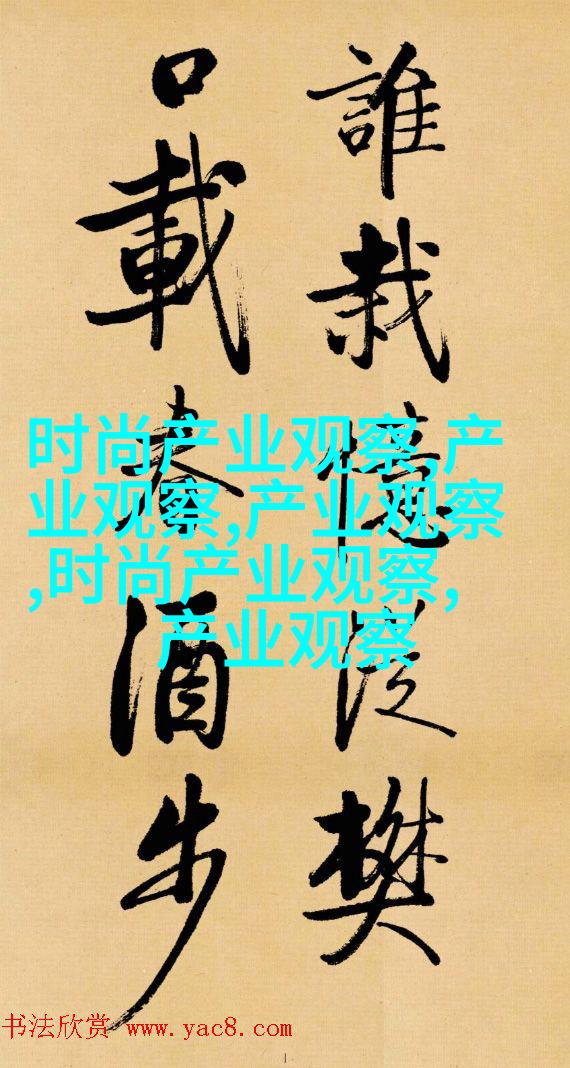 誰栽憶從樊
口載春酒步
时尚产业观察,产
业观察,产业观察
,时尚产业观察,
产业观察
书法欣赏 www.yac8.com